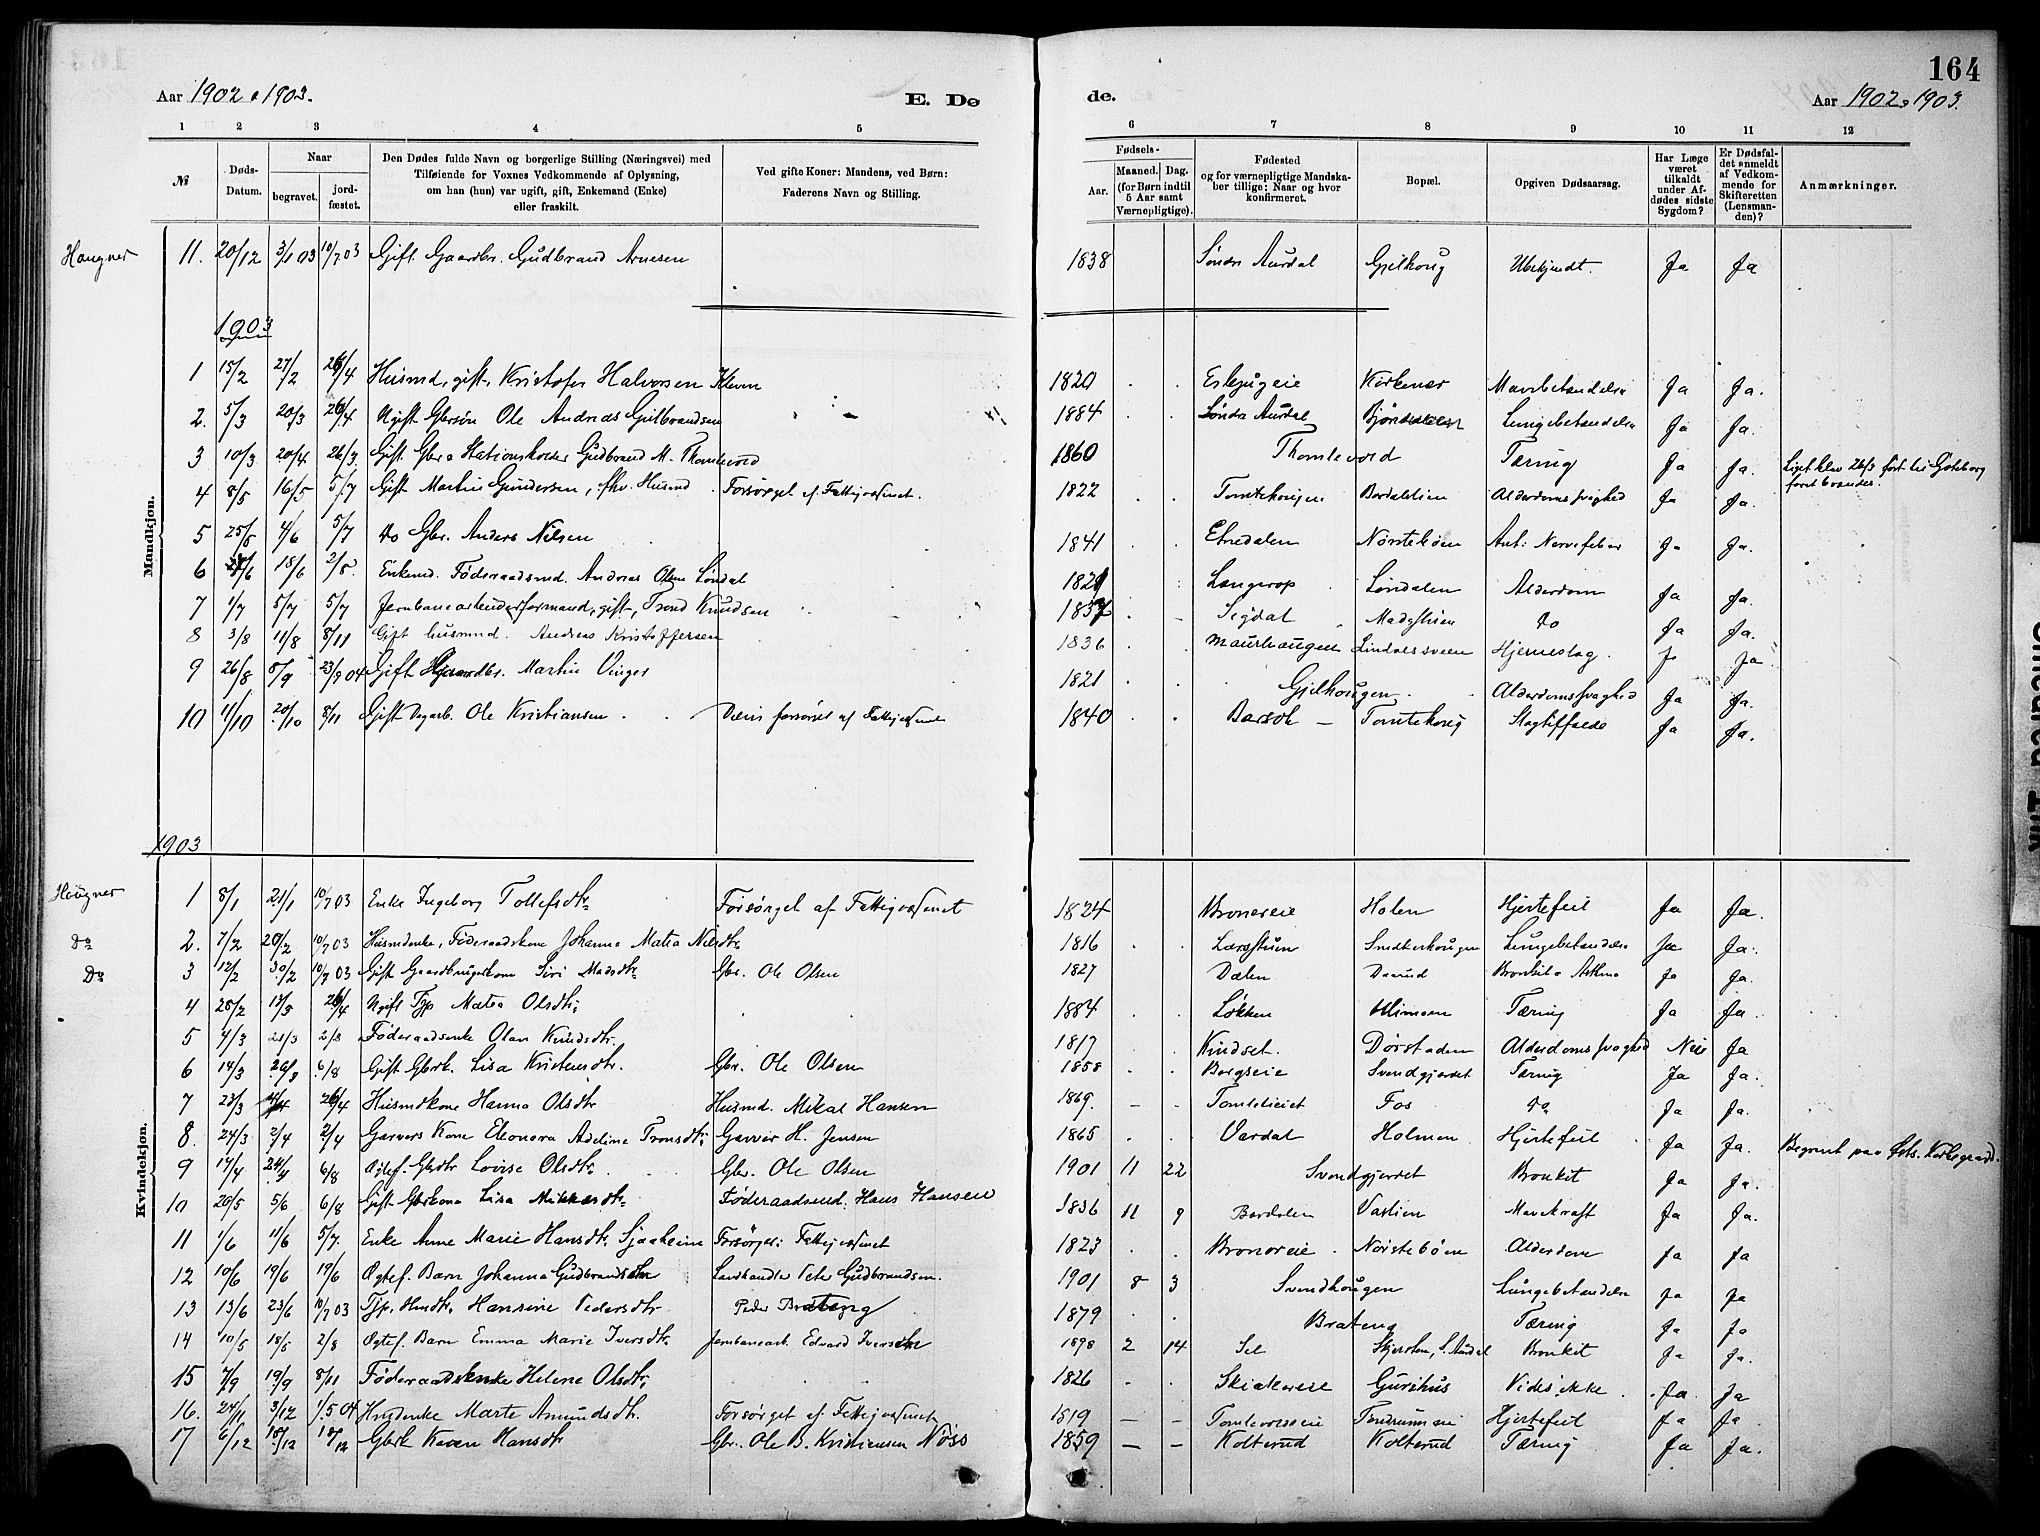 164
Aar 1902 & 1903. E. Dø de. Aar 1902 & 1903.
1 2 3 4 5 6 7 8 9 10 11 12
№ Døds-Datum. Naar begravet. jord-fæstet. Den Dødes fulde Navn og borgerlige Stilling (Næringsvei) med Tilføiende for Voxnes Vedkommende af Oplysning, om han (hun) var ugift, gift, Enkemand (Enke) eller fraskilt. Ved gifte Koner: Mandens, ved Børn: Faderens Navn og Stilling. Fødsels- Aar. Maaned. Dag. (for Børn indtil 5 Aar samt Værnepligtige). Fødested og for værnepligtige Mandskaber tillige: Naar og hvor konfirmeret. Bopæl. Opgiven Dødsaarsag. Har Læge været tilkaldt under Afdødes sidste Sygdom? Er Dødsfaldet anmeldt af Vedkommende for Skifteretten (Lensmanden)? Anmærkninger.
Mandkjøn.
Haugner 11. 20/12 3/1 03 10/7 03 Gift Gaardbr. Gudbrand Arnesen 1838 Søndr Aurdal Gjelhoug Ubekjendt. Ja Ja
1903
1 15/2 27/2 26/4 Husmd, gift, Kristofer Halvorsen Kleven 1820 Eslejugeie Kirkenær Mavebetændelse Ja Ja.
2. 5/3 20/3 26/4 Ugift Gbrsøn Ole Andreas Gulbrandsen 1884 Søndre Aurdal Lungebetændelse Ja Ja.
3 10/3 20/4 26/3 Gift Gbr & Stationsholder Gudbrand M. Thomlevold 1860 Thomlevold Tæring Ja Ja. Liget blev 26/3 ført til Göteborg foret brændes.
4 8/5 16/5 5/7 Gift Martin Gundersen, fhv. Husmd Forsørget af Fattigvæsenet. 1822 Tomtehougen Bordalslien Alderdomssvaghed Ja Ja.
5 25/5 4/6 5/7 Do Gbr. Anders Nilsen 1841 Etnedalen Nørstebøen Ant: Nervefeber Ja Ja.
6 18/6 2/8. Enkemd. Føderaadsmd. Andreas Olsen Lindal Langerop Lindalen Alderdom Ja Ja.
7 1/7 5/7 5/7 Jernbanearbeiderformand, gift, Trond Knudsen 1857 Sigdal Madsstuen Do Ja Ja.
8 3/8 11/8 8/11 Gift husmnd. Andreas Kristoffersen 1836 Maurhaugen Lindalssveen Hjerneslag. Ja Ja
9 26/8 5/9 23/9 04 Gift Gaardbr. Martin Vinger 1821 Gjelhougen. Alderdomssvaghed Ja Ja.
10 11/10 20/10 8/11 Gift Dagarb. Ole Kristiansen. Delvis forsørget af Fattigvæsenet 1840 Tomtehoug Slagtilfælde Ja Ja.
1903
Kvindekjøn.
Haugner 1 8/1 21/1 10/7 03 Enke Ingeborg Tollefsdtr Forsørget af Fattigvæsenet 1824 Bronereie Holen Hjertefeil Ja Ja.
Do 2. 7/2 20/2 10/7 03 Husmdenke, Føderaadskone Johanne Matea Nilsdtr 1816 Larsstuen Smedterhougen Lungebetændelse Ja Ja.
Do 3 12/2 10/7 03 Gift Gaardbrugerkone Siri Madsdtr Gbr. Ole Olsen 1827 Dælen Daarud Bronkit & Asthma Ja Ja.
4 28/2 17/3 26/4 Ugift Tjp Matea Olsdtr; 1884 Løkken Mimoen Tæring Ja Ja.
5 4/3 21/3 2/8 Føderaadsenke Olea Knudsdtr. 1817 Kindset. Dørstaden Alderdomssvaghed Nei Ja
6 14/3 20/3 6/8 Gift Gbrk. Lisa Kristensdtr. Gbr. Ole Olsen 1858 Borgseie Svendgjerdet Tæring Ja Ja.
7 23/3 26/4 Husmdkone Hanna Olsdtr Husmd. Mikal Hansen 1869. Tomleieiet Fos Do Ja Ja.
8. 24/3 2/4 2/4 Garvers Kone Eleonora Adeline Tronsdtr; Garver H. Jensen 1865 Vardal Holmen Hjertefeil Ja Ja. Begravet paa Østs. Kirkegaard.
9 17/4 24/4 6/8 Ægtef. Gbrdtr Lovise Olsdtr. Gbr. Ole Olsen 1901 11 22 Svendgjerdet Bronkit Ja Ja.
10 20/5 5/6 6/8 Gift Gbrkone Lisa Mikkelsdtr Føderaadsmd. Hans Hansen 1836 11 9 Bordalen Vaslien Mavekræft Ja Ja.
11 1/6 11/6 5/7. Enke Anne Marie Hansdtr. Sjaaheim Forsørget: Fattigvæsenet 1823 Bronereie Nørstebøen Alderdom Ja Ja
12 10/6 19/6 19/6 Ægtef. Barn Johanna Gudbrandsdtr Landhandler Peter Gudbrandsen. 1901 8 3 Svendhougen Lungebetændelse Ja Ja
13 13/6 23/6 10/7 03 Tjp, Hmdtr, Hansine Pedersdtr Peder Brateng 1879 Brateng Tæring Ja Ja
14 10/5 18/5 2/8 Ægtef. Barn Emma Marie Iversdtr. Jernbanearb. Edvard Iversen 1898 2 14 Sel Skjerolen, S. Aurdal Bronkit Ja Ja.
15 7/9 19/9 8/11 Føderaadsenke Helene Olsdtr; 1826 Skiakereie Gurihus Vides ikke. Ja Ja
16. 24/11 3/12 1/5 04 Hmdenke Marte Amundsdtr. Forsørget af Fattigvæsenet 1819 Tomlevolseie Hjertefeil Ja Ja.
17 6/12 18/12 18/12 Gbrk Karen Hansdtr Gbr. Ole B. Kristiansen Nöss 1859 Kolterud Kolterud Tæring Ja Ja.